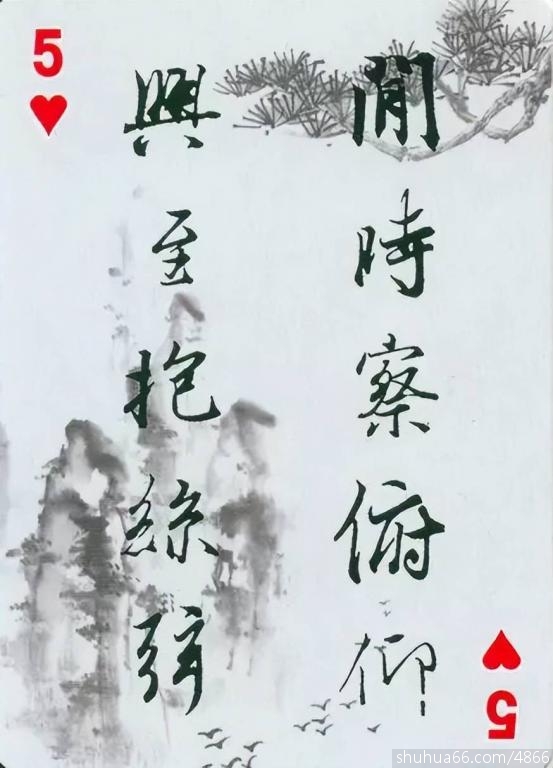 5
閒時察俯仰
興至抱絲弦
5
shuhua66.com/4866